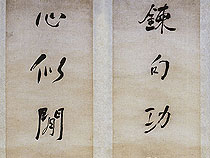 鍊句功
心似閒